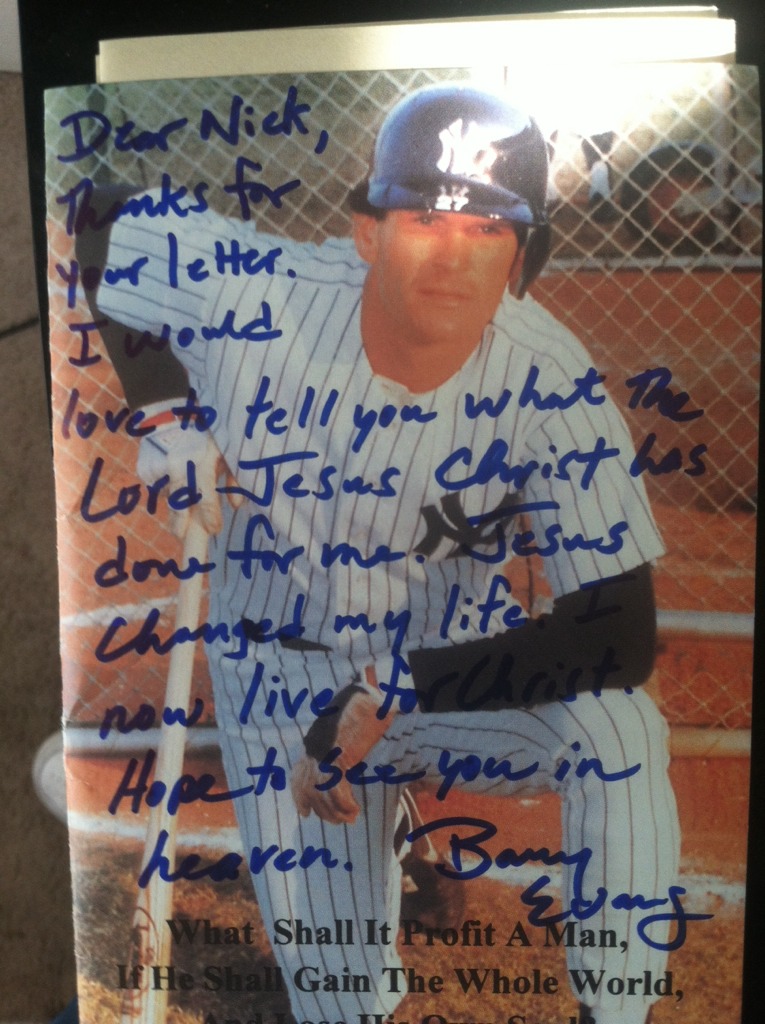 Dear Nick,
Thanks for
your letter.
I would
love to tell you what The
Lord Jesus Christ has
done for me. Jesus
Changed my life. I
now live for Christ.
Hope to see you in
heaven. Barry
Evans
NY
27
NY
What Shall It Profit A Man,
If He Shall Gain The Whole World,
And Lose His Own Soul?